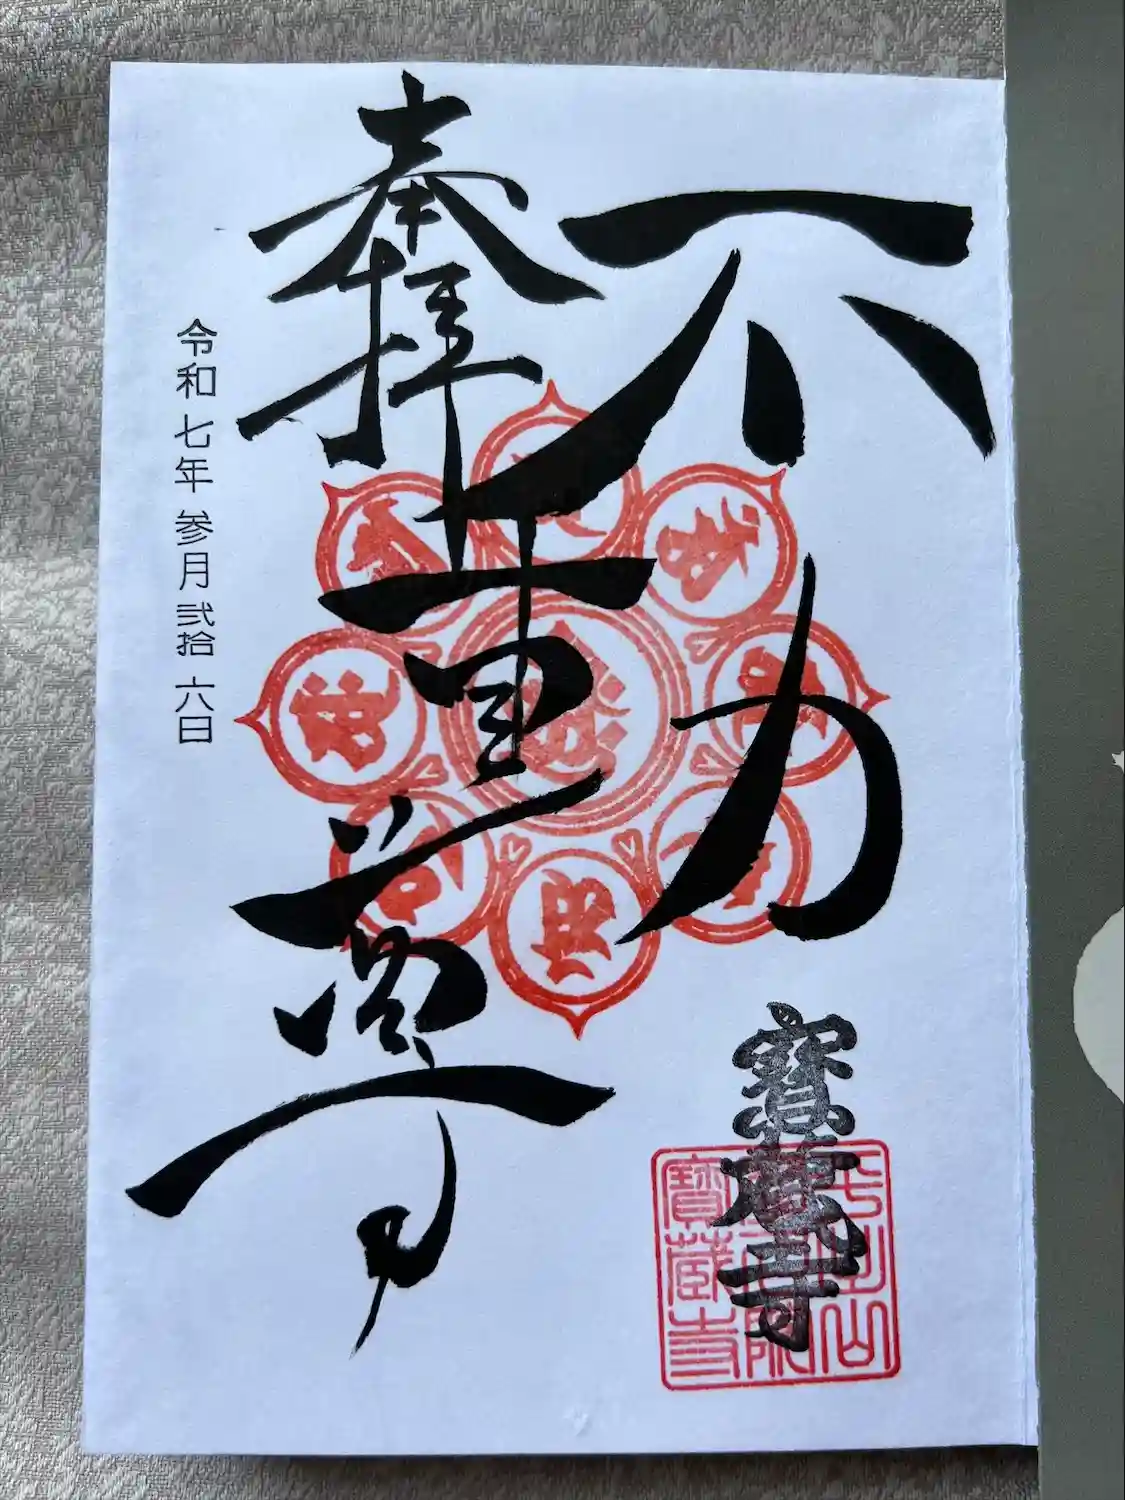 奉拝
不動尊
寶蔵寺
寶蔵寺
令和七年参月弐拾六日